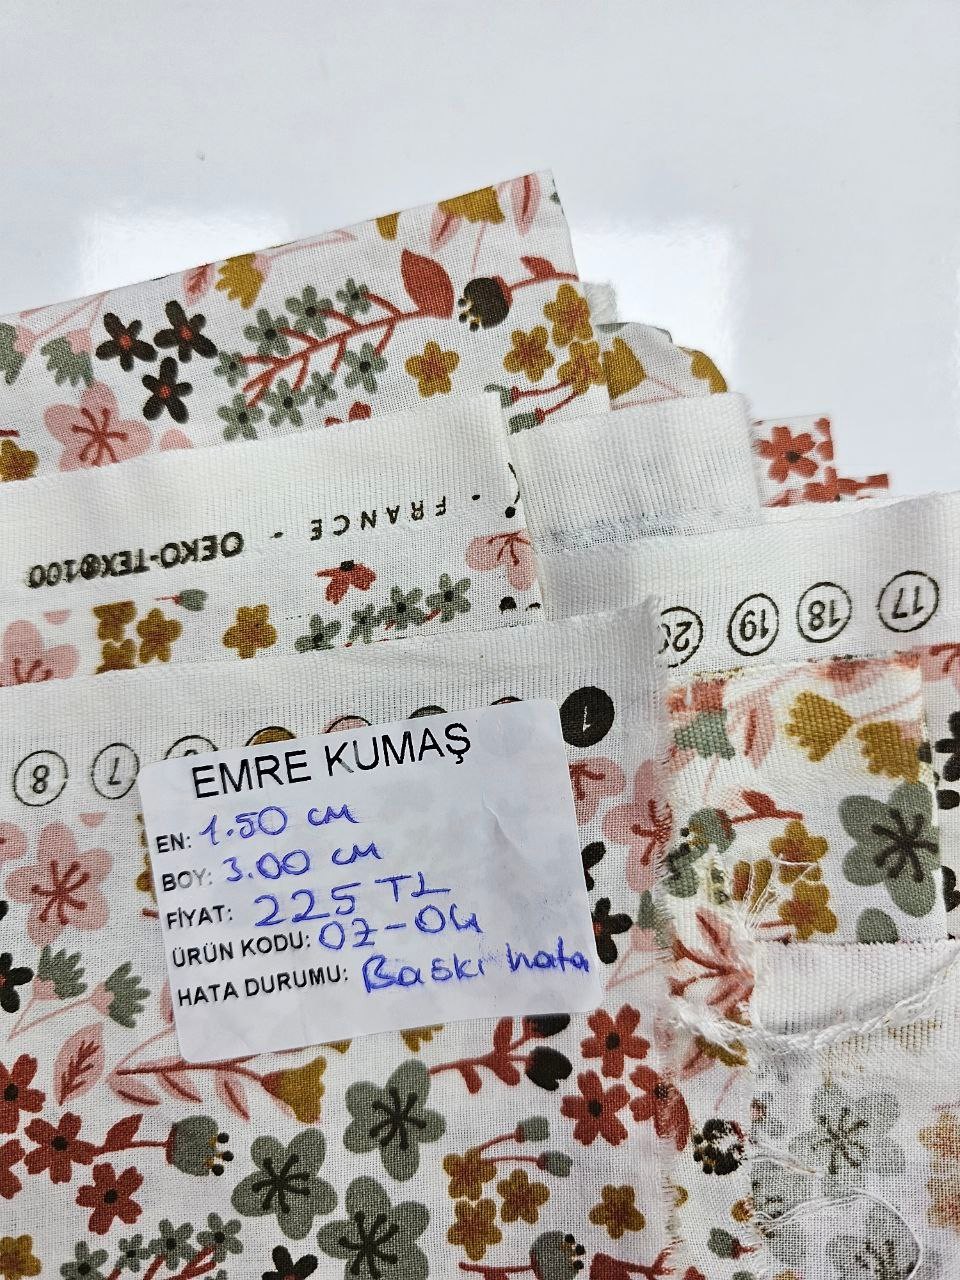 - FRANCE - OEKO-TEX®100
17 18 19
1
7 8
EMRE KUMAŞ
EN: 1.50 cm
BOY: 3.00 cm
FİYAT: 225 TL
ÜRÜN KODU: OZ-04
HATA DURUMU: Baskı hata